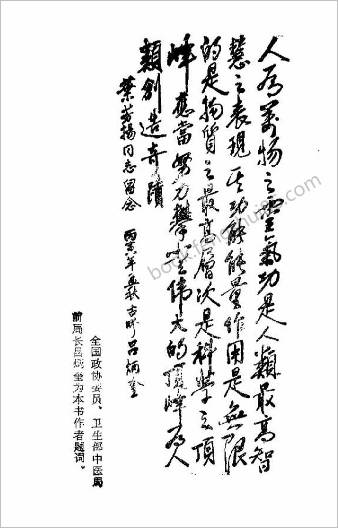 人为萬物之靈氣功是人類最高智
慧之表现其功能能量作用是無限
的是物質之最高層次是科学之顶
峰應當努力攀登伟大的顶峰为人
類創造奇蹟
同志留念 丙寅年 秋 吕炳奎
全国政协委员、卫生部中医局
前局长吕炳奎为本书作者题词。